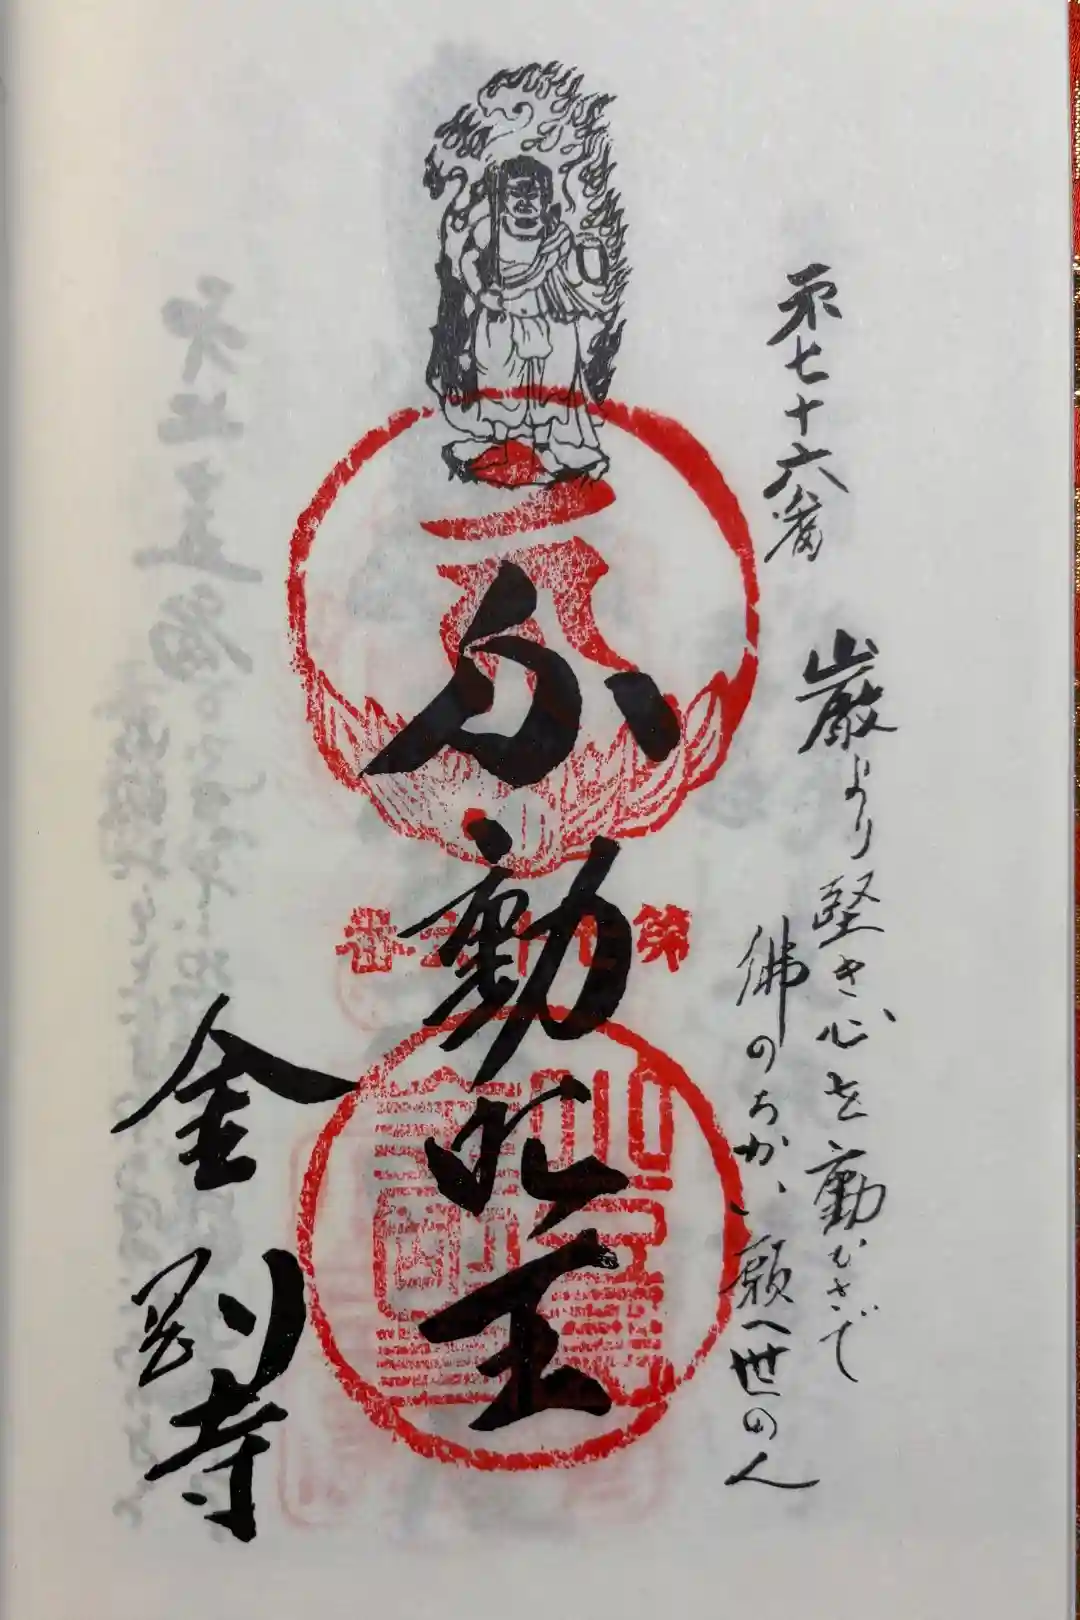 第七十六番
巌より堅き心を動かさで
佛のちかひ願へ世の人
不動明王
金剛寺